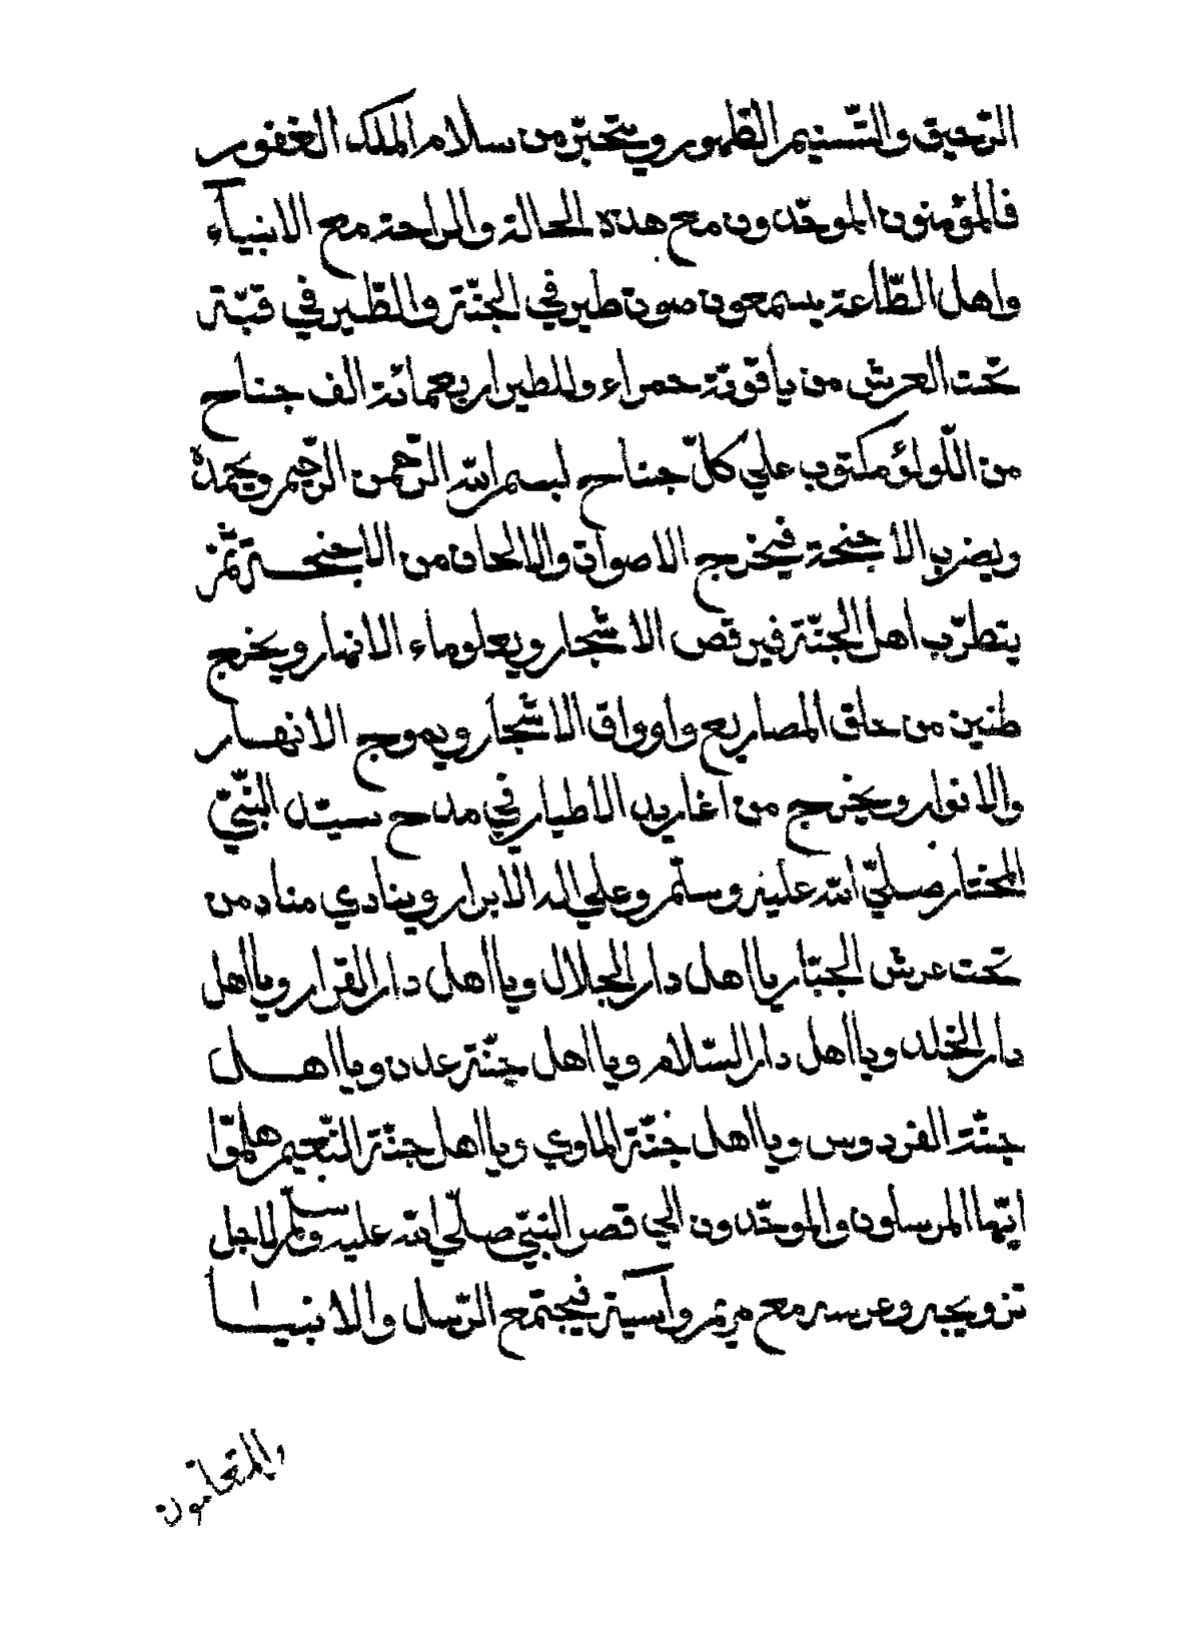 الرّحيق والتّسنيم الطّهور ويتحيّر من سلام الملك الغفور
فالمؤمنون الموحّدون مع هذه الحالة والراحة مع الانبيآء
واهل الطّاعة يسمعون صوت طير في الجنّة والطّير في قبّة
تحت العرش من ياقوتة حمراء وللطير اربعمائة الف جناح
من اللّولؤ مكتوب علي كلّ جناح لبسم الله الرّحمن الرّحيم ويحمده
ويضرب الاجنحة فيخرج الاصوات والالحان من الاجنحة ثمّ
يتطرّب اهل الجنّة فيرقص الاشجار ويعلو ماء الانهار ويخرج
طنين من حلق المصاريع واوراق الاشجار ويموج الانهار
والانوار ويخرج من اغاريد الاطيار في مدح سيّد النّبيّ
المختار صلّي الله عليه وسلّم وعلي اله الابرار وينادي مناد من
تحت عرش الجبّار يا اهل دار الجلال ويا اهل دار القرار ويا اهل
دار الخلد ويا اهل دار السّلام ويا اهل جنّة عدن ويا اهل
جنّة الفردوس ويا اهل جنّة الماوي ويا اهل جنّة النّعيم هلمّوا
ايّها المرسلون والموحّدون الي قصر النبيّ صلّي الله عليه وسلّم لاجل
تزويجه وعرسه مع مريم وآسية فيجتمع الرّسل والانبيا
والمتعلمون